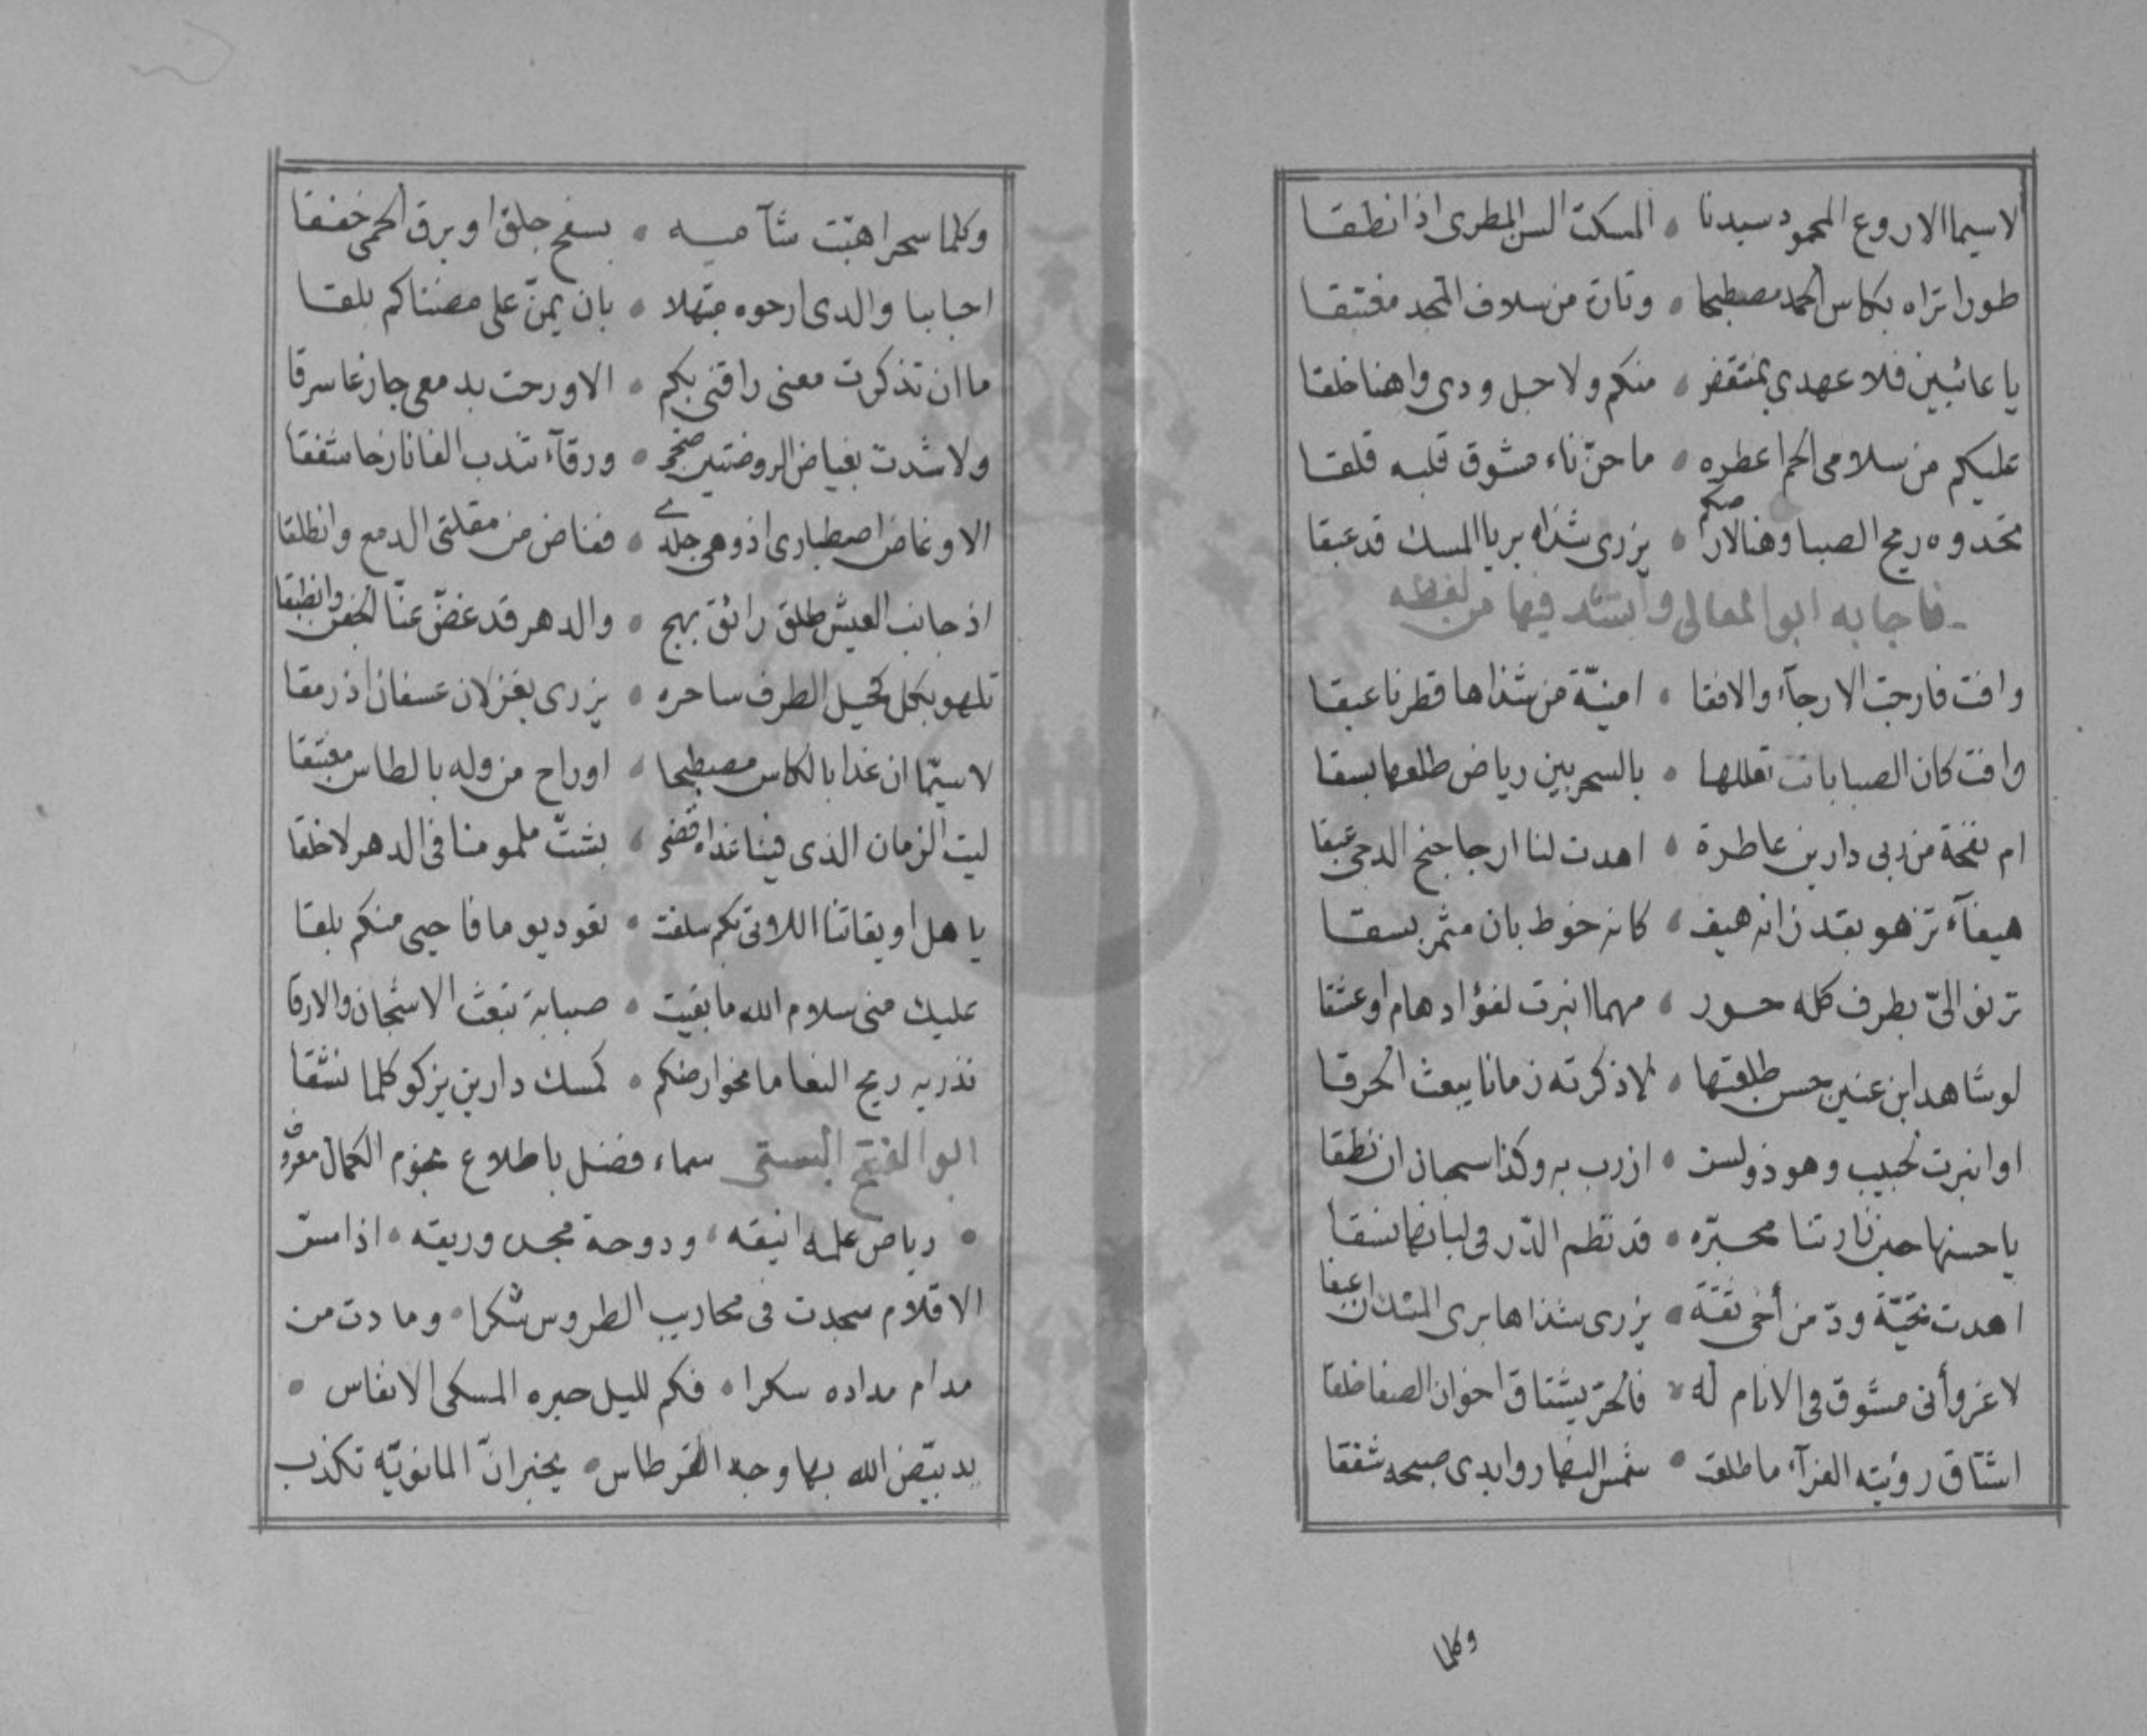 لاسيما الاروع المحمود سيدنا • المسكت اللسن المطرى اذا نطقا
طورا تراه بكاس الحمد مصطبحا • وتارة من سلاف المجد مغتبقا
يا غائبين فلا عهدي بمنتقض • منكم ولا حبل ودى واهنا خلقا
عليكم من سلامى الجم اعطره • ما حنّ ناء مشوق قلبه قلقا
تحدوه ريح الصبا وهنا لارضكم • يزرى شذاه بريا المسك قد عبقا
فاجابه ابو المعالى وانشد فيها من لفظه
وافت فارجت الارجآء والافقا • امنيّة من شذاها قطرنا عبقا
وافت كان الصبا باتت تعللها • بالسحر بين رياض طلعها بسقا
ام نفحة من ربى دارين عاطرة • اهدت لنا ارجا جنح الدجى عبقا
هيفآء تزهو بقد زانه هيف • كانه خوط بان مثمر بسقا
ترنو الىّ بطرف كله حور • مهما انبرت لفؤاد هام او عشقا
لو شاهد ابن عنين حسن طلعتها • لاذكرته زمانا يبعث الحرقا
او انبرت لحبيب وهو ذو لسن • ازرت به وكذا سحبان ان نطقا
يا حسنها حين زارتنا محبّره • قد نظم الدّر فى لباتها نسقا
اهدت تحيّة ودّ من أخى ثقة • يزرى شذاها برى المندل ان عبقا
لا غرو أنى مشوق فى الانام له • فالحرّ يشتاق اخوان الصفا خلقا
اشتاق رؤيته الغرآء ما طلعت • شمس النهار وابدى صبحه شفقا
وكلما
وكلما سحرا هبّت شآميه • بسفح جلق او برق الحمى خفقا
احبابنا والذى ارجوه مبتهلا • بان يمنّ على مضناكم بلقا
ما ان تذكرت معنى راقنى بكم • الا ورحت بدمعى جازعا شرقا
ولا شدت بغياض الروضتين ضحى • ورقآء تندب الفا نازحا شفقا
الا وغاض اصطبارى اذ وهى جلدي • ففاض من مقلتى الدمع وانطلقا
اذ جانب العيش طلق رائق بهج • والدهر قد غضّ عنّا الجفن وانطبقا
تلهو بكل كحيل الطرف ساحره • يزرى بغزلان عسفان اذ رمقا
لاسيّما ان غدا بالكاس مصطبحا • او راح من وله بالطاس مغتبقا
ليت الزمان الذى فينا غداه قضى • بشتّ ملمومنا فى الدهر لا خلقا
يا هل اويقاتنا اللاوتى بكم سلفت • تعود يوما فاحيى منكم بلقا
عليك منى سلام الله ما بقيت • صبابة تبعث الاشجان والارقا
تذريه ريح النعاما نحو ارضكم • كمسك دارين يزكو كلما نشقا
ابو الفتح البستى سماء فضل باطلاع نجوم الكمال معروف
• رياض علمه انيقه • ودوحة مجده وريقه • اذا مسّ
الاقلام سجدت فى محاريب الطروس شكرا • ومادت من
مدام مداده سكرا • فكم لليل حبره المسكى الانفاس •
يد بيّض الله بها وجه القرطاس • يخبر انّ المانويّه تكذب